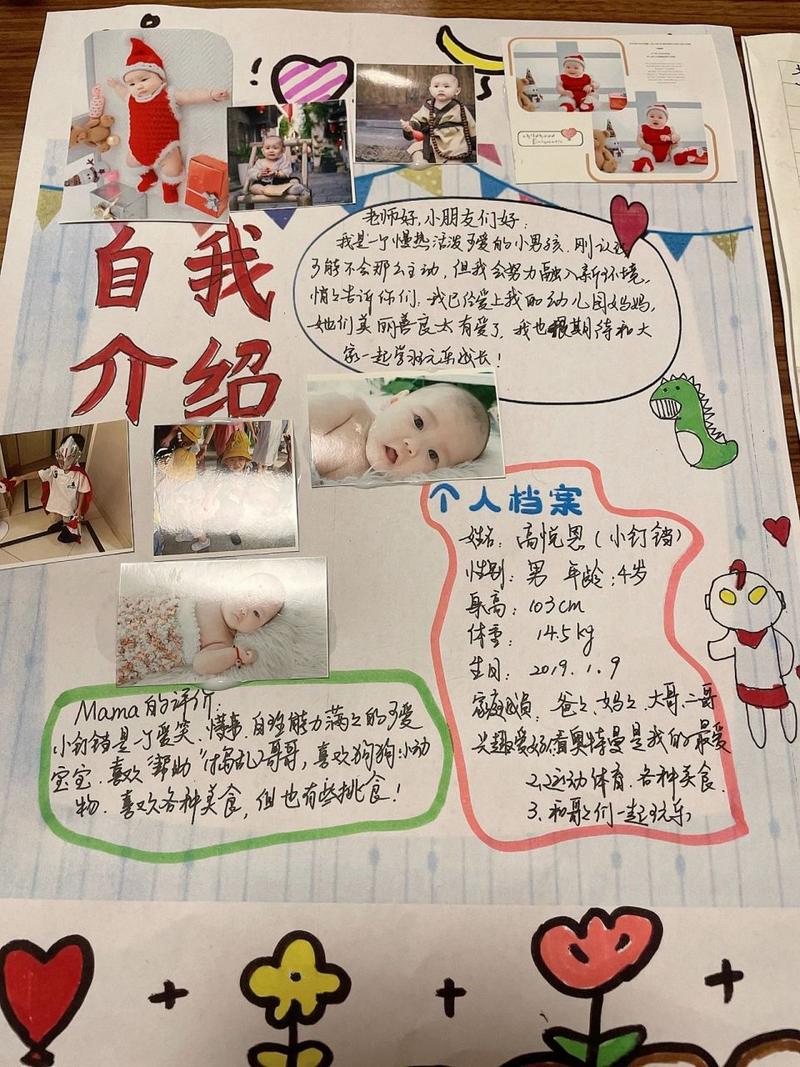 自我
介绍
老师好,小朋友们好:
我是一个慢热活泼可爱的小男孩.刚认识
可能不会那么主动,但我会努力融入新环境,
悄悄告诉你们,我已经爱上我的幼儿园妈妈,
她们美丽善良太有爱了,我也很期待和大
家一起学习玩乐成长!
个人档案
姓名:高悦恩(小叮铛)
性别:男 年龄:4岁
身高:103cm
体重:14.5kg
生日:2019.1.9
家庭成员:爸爸、妈妈、大哥、二哥
兴趣爱好:看奥特曼是我的最爱
2.运动体育.各种美食.
3.和哥哥们一起玩乐
Mama的评价:
小叮铛是一个爱笑、懂事、自理能力满满的可爱
宝宝.喜欢"帮助"(捣乱)哥哥,喜欢狗狗小动
物.喜欢各种美食,但也有些挑食!